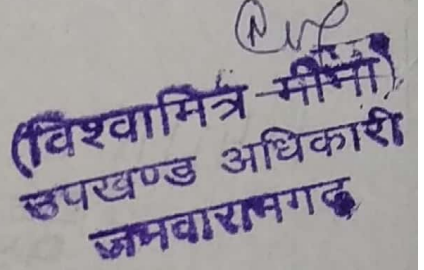 (विश्वामित्र मीना)
उपखण्ड अधिकारी
जमवारामगढ़